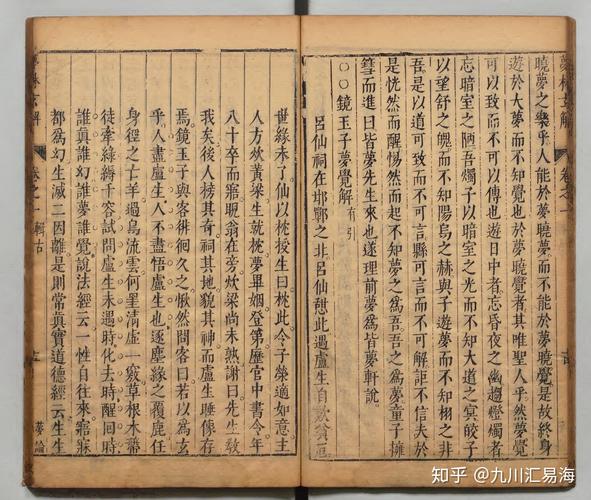 曉夢之樂乎人能於夢曉夢而不能於夢曉覺是故終身
遊於大夢而不知覺也於夢曉覺者其唯聖人乎然夢覺
可以致而不可以傳也遊日中者忘昏夜之幽趨燈燭者
忘暗室之陋吾燭子以暗室之光而不知大道之冥皎子
以望舒之魄而不知陽烏之赫與子遊夢而不知栩之非
吾是以道可致而不可言縣可言而不可解詎不信夫於
是恍然而醒惕然而起不知夢之爲吾吾之爲夢童子擁
篲而進曰皆夢先生來也遂理前夢爲皆夢軒說
○○鏡玉子夢覺解 有引
呂仙祠在邯鄲之北呂仙憩此遇盧生自歎貧
世緣未了仙以枕授生曰枕此令子榮適如意主
人方炊黃粱生就枕夢畢姻登第歷官中書令年
八十卒而寤睨翁在旁炊粱尚未熟謝曰先生敎
我矣後人榜其奇祠其地貌其神而盧生睡像存
焉鏡玉子與客徘徊久之愀然問客曰若以爲玄
乎人盡盧生人不盡悟盧生也逐塵緣之覆鹿任
身徑之亡羊過鳥流雲何罣清虛一竅草根木蘂
徒牽綠縟千容試問盧生未遇時化去時醒回時
誰眞誰幻誰夢誰覺說法經云一性自往來寤寐
都爲幻生滅二因離是則常眞實道德經云生生
夢林玄解
卷之一
輯古
夢論
夢林玄解
卷之一
知乎 @九川汇易海